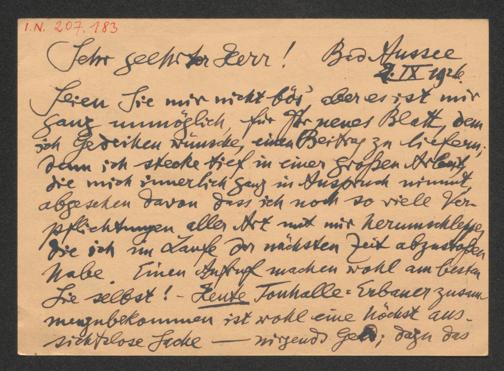 I.N. 207.183
Sehr geehrter Herr! Bad Aussee
2. IX 1926
Seien Sie mir nicht bös, aber es ist mir
ganz unmöglich, für Ihr neues Blatt, dem
ich Gedeihen wünsche, einen Beitrag zu liefern;
denn ich stecke tief in einer großen Arbeit,
die mich innerlich ganz in Anspruch nimmt,
abgesehen davon dass ich noch so viele Ver-
pflichtungen aller Art mit mir herumschleppe,
die ich im Laufe der nächsten Zeit abzustoßen
habe. Einen Aufruf machen wohl am besten
Sie selbst! – Heute Tonhalle-Erbauer zusam
menzubekommen ist wohl eine höchst aus-
sichtslose Sache — nirgends Geld; dazu das